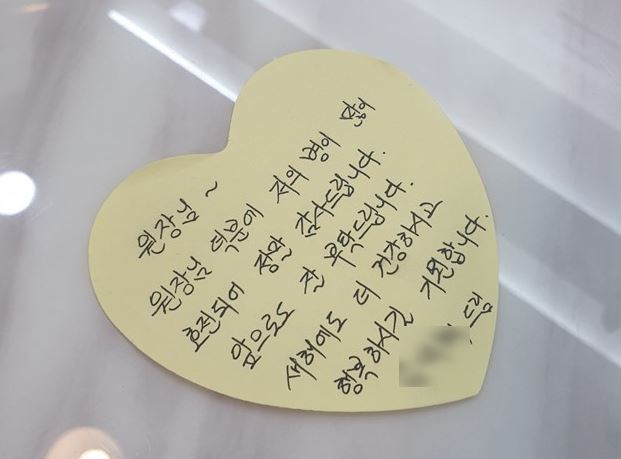 원장님~
원장님 덕분에 저의 병이 많이
호전되어 정말 감사드립니다.
앞으로도 잘 부탁드립니다.
새해에도 더 건강하시고
행복하시길 기원합니다.
드림